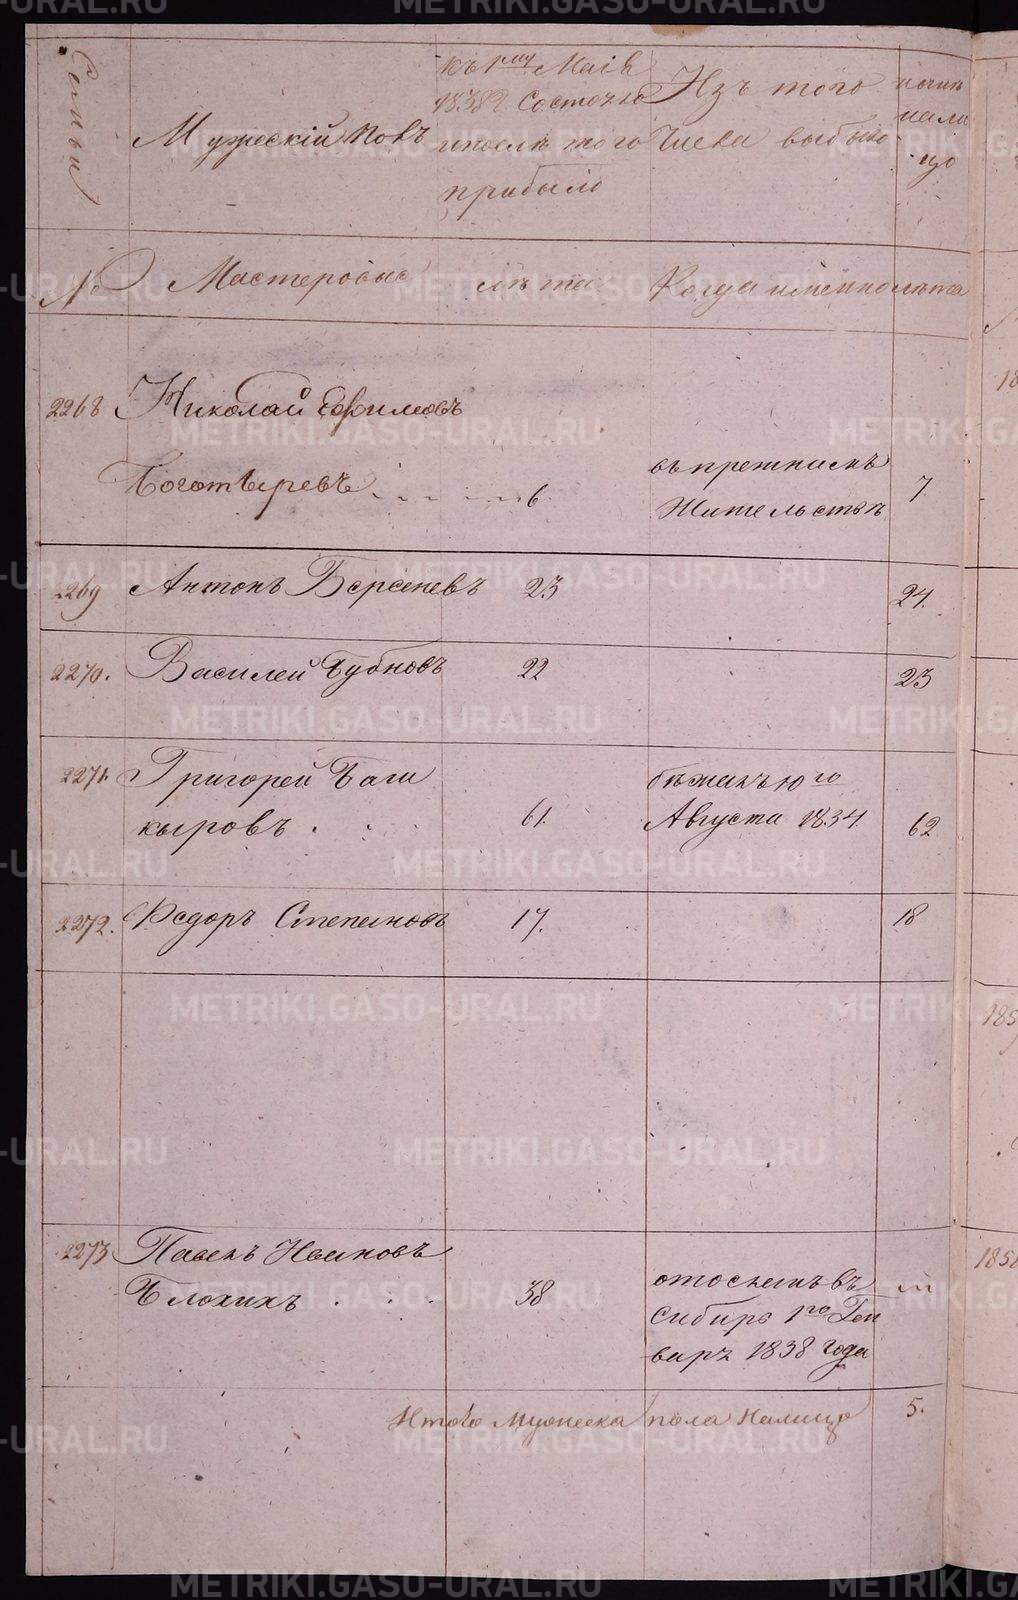 Семьи
Мужескій полъ
къ 1му Маія
1838г. Состояло
и после того
прибыло
Изъ того
числа выбыло
ныне
нали
цо
№
Мастеровые
лета
Когда именно
лета
2268
Николай Ефимовъ
Боготыревъ
6.
въ прежнемъ
Жительстве
7.
2269
Антонъ Берсеневъ
23
24.
2270.
Василей Бубновъ
22
23
2271.
Григорей Баш
кыровъ
61.
бежалъ 10го
Августа 1834.
62
2272.
Федоръ Степановъ
17.
18
2273
Павелъ Ивановъ
Блохихъ
38
отосланъ въ
сибирь 1го Ген
варъ 1838 года
Итого Мужеска пола Налицо
5.
185
METRIKI.GASO-URAL.RU